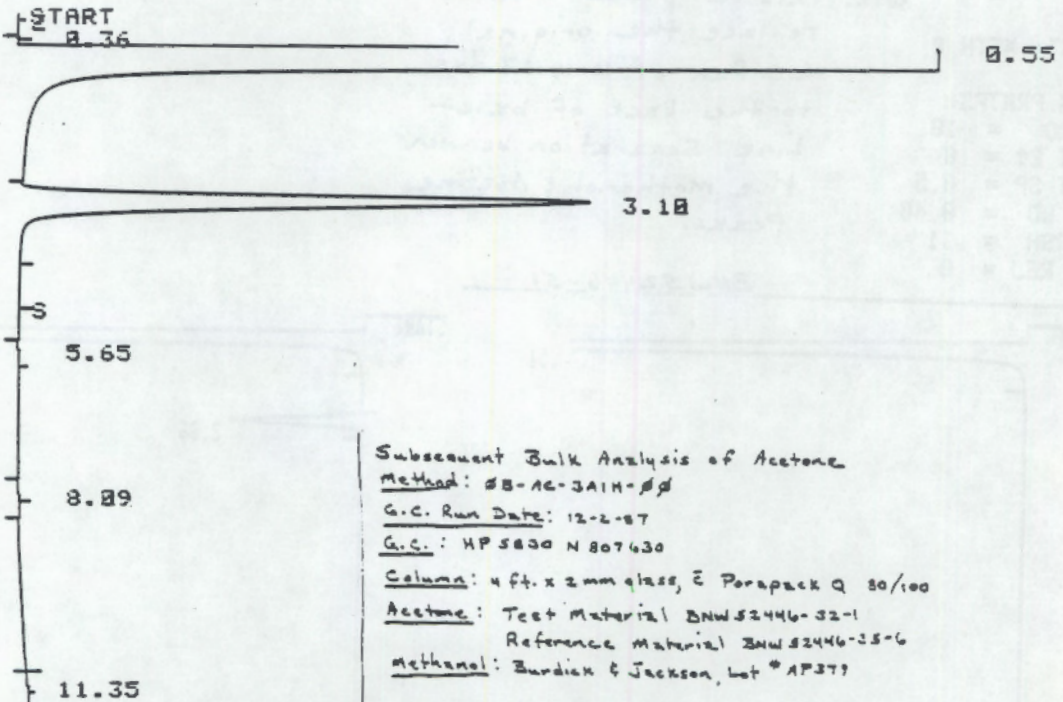 START
0.36
0.55
3.10
S
5.65
8.09
11.35
Subsequent Bulk Analysis of Acetone
Method: ØB-AC-3A1H-ØØ
G.C. Run Date: 12-2-87
G.C.: HP 5830 N 807630
Column: 4 ft. x 2 mm glass, c̄ Porapack Q 80/100
Acetone: Test Material BNW 52446-32-1
Reference Material BNW 52446-35-6
Methanol: Burdick & Jackson, Lot # AP379